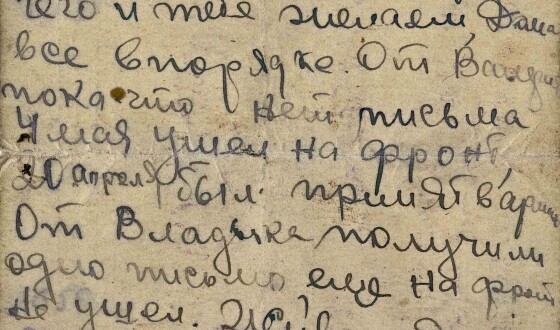 чего и тебе желаем, Дома
все впорядке. От
пока что нет письма
4 мая ушел на фронт,
20 апреля был принят в армию
От Владика получили
одно письмо еще на фронт
не ушел.